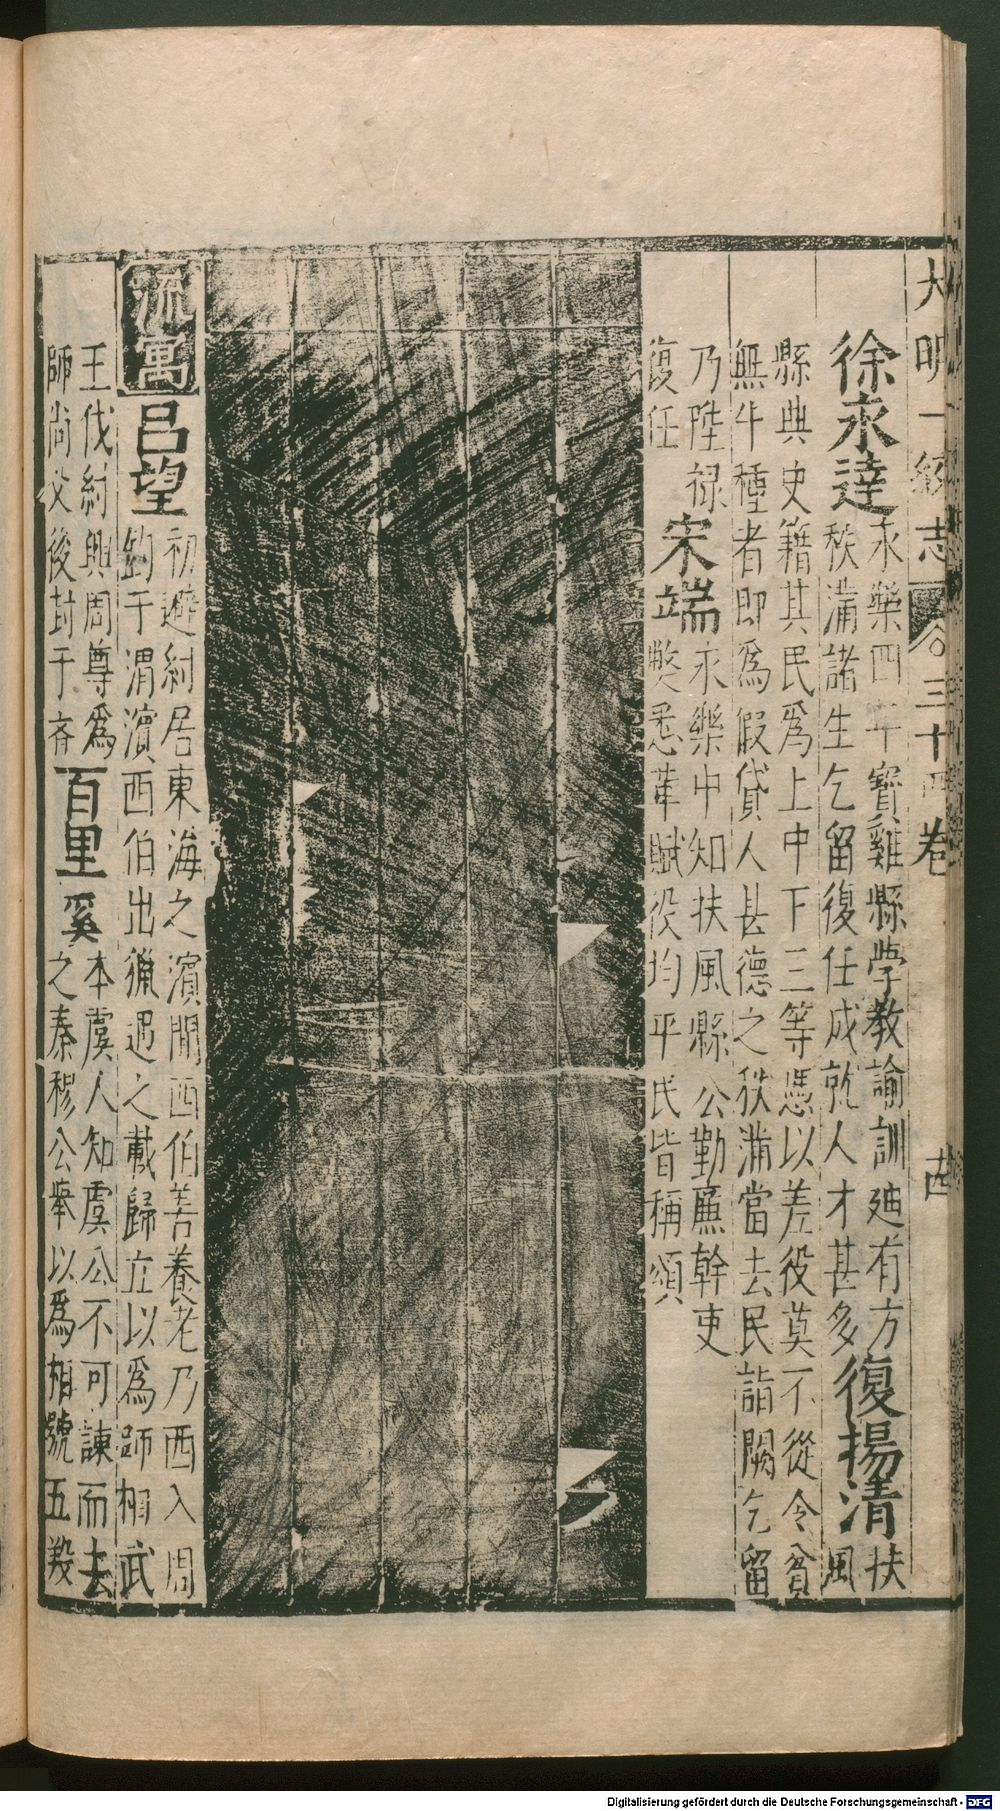 大明一統志 卷之三十四卷 十四
徐永達
永樂四年寶雞縣學教諭訓廸有方
秩滿諸生乞留復任成就人才甚多
復揚清
扶
風
縣典史籍其民爲上中下三等凴以差役莫不從令貧
無牛種者即爲假貸人甚德之秩滿當去民詣闕乞留
乃陞祿
復任
宋端
永樂中知扶風縣公勤廉幹吏
弊悉革賦役均平民皆稱頌
流寓
呂望
初避紂居東海之濱聞西伯善養老乃西入周
釣于渭濱西伯出獵遇之載歸立以爲師相武
王伐紂興周尊爲
師尚父後封于齊
百里奚
本虞人知虞公不可諫而去
之秦穆公舉以爲相號五羖
Digitalisierung gefördert durch die Deutsche Forschungsgemeinschaft - DFG